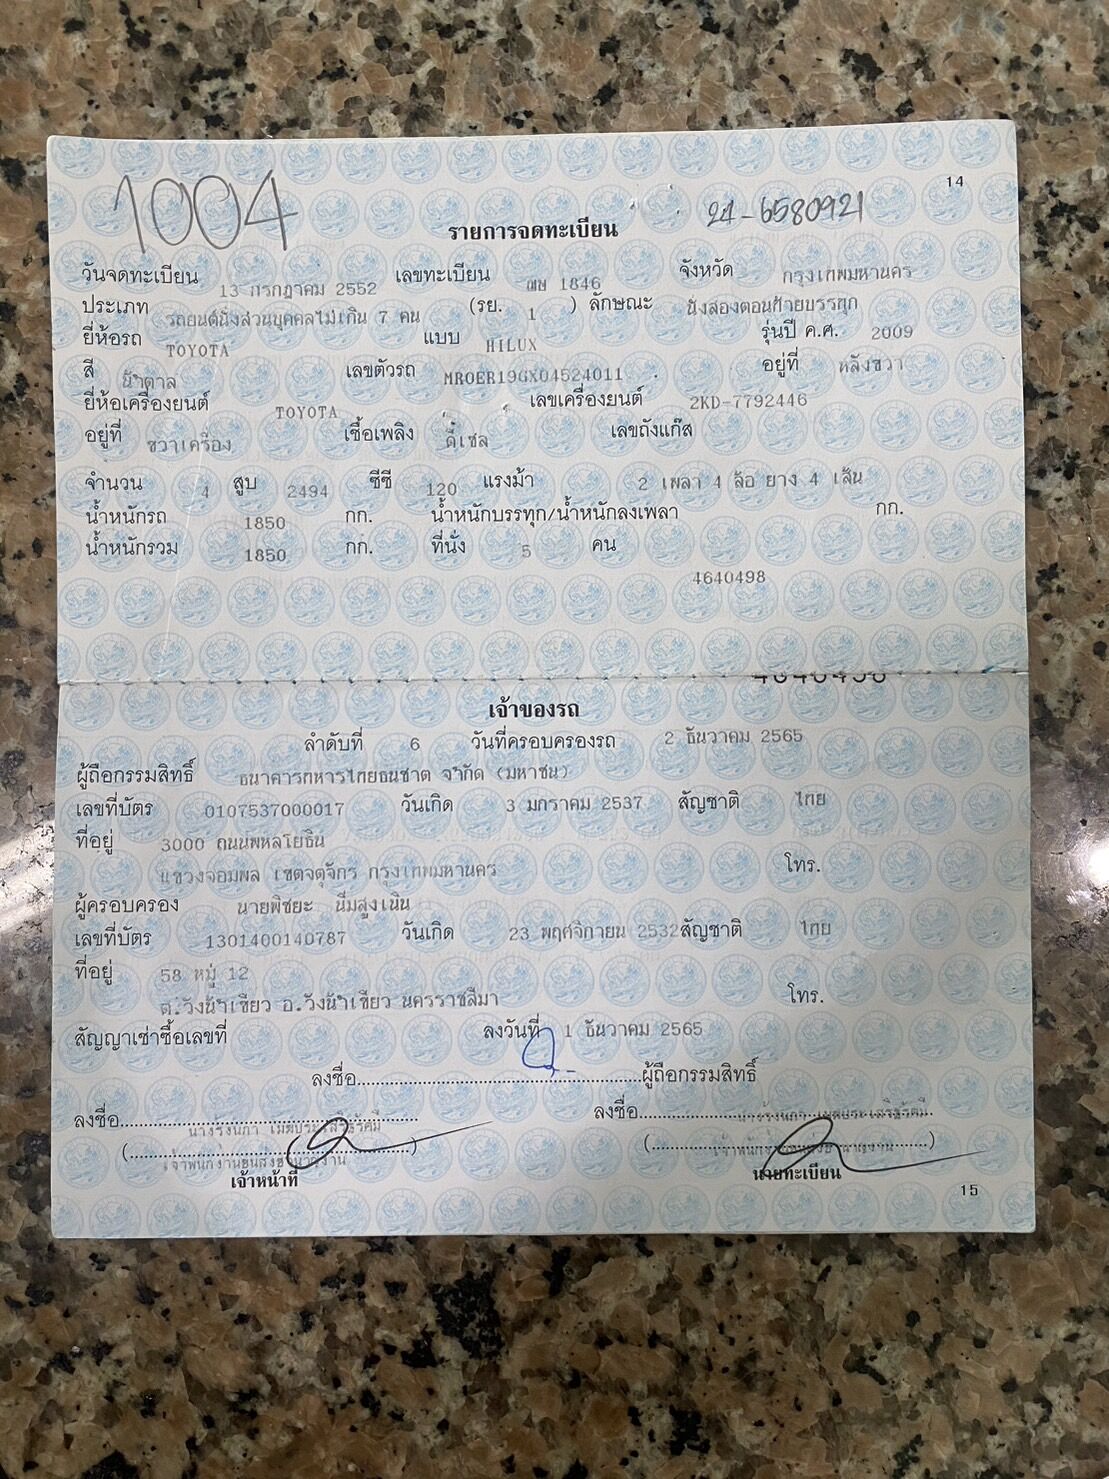 14
1004
24-6580921
รายการจดทะเบียน
วันจดทะเบียน 13 กรกฎาคม 2552 เลขทะเบียน ฌษ 1846 จังหวัด กรุงเทพมหานคร
ประเภท รถยนต์นั่งส่วนบุคคลไม่เกิน 7 คน (รย. 1 ) ลักษณะ นั่งสองตอนท้ายบรรทุก
ยี่ห้อรถ TOYOTA แบบ HILUX รุ่นปี ค.ศ. 2009
สี น้ำตาล เลขตัวรถ MROER19GX04524011 อยู่ที่ หลังขวา
ยี่ห้อเครื่องยนต์ TOYOTA เลขเครื่องยนต์ 2KD-7792446
อยู่ที่ ขวาเครื่อง เชื้อเพลิง ดีเซล เลขถังแก๊ส
จำนวน 4 สูบ 2494 ซีซี 120 แรงม้า 2 เพลา 4 ล้อ ยาง 4 เส้น
น้ำหนักรถ 1850 กก. น้ำหนักบรรทุก/น้ำหนักลงเพลา กก.
น้ำหนักรวม 1850 กก. ที่นั่ง 5 คน
4640498
เจ้าของรถ
ลำดับที่ 6 วันที่ครอบครองรถ 2 ธันวาคม 2565
ผู้ถือกรรมสิทธิ์ ธนาคารทหารไทยธนชาต จำกัด (มหาชน)
เลขที่บัตร 0107537000017 วันเกิด 3 มกราคม 2537 สัญชาติ ไทย
ที่อยู่ 3000 ถนนพหลโยธิน
แขวงจอมพล เขตจตุจักร กรุงเทพมหานคร โทร.
ผู้ครอบครอง นายพิชยะ นิ่มสูงเนิน
เลขที่บัตร 1301400140787 วันเกิด 23 พฤศจิกายน 2532 สัญชาติ ไทย
ที่อยู่ 58 หมู่ 12
ต.วังน้ำเขียว อ.วังน้ำเขียว นครราชสีมา โทร.
สัญญาเช่าซื้อเลขที่ ลงวันที่ 1 ธันวาคม 2565
ลงชื่อ ผู้ถือกรรมสิทธิ์
ลงชื่อ ลงชื่อ
เจ้าหน้าที่ นายทะเบียน
15